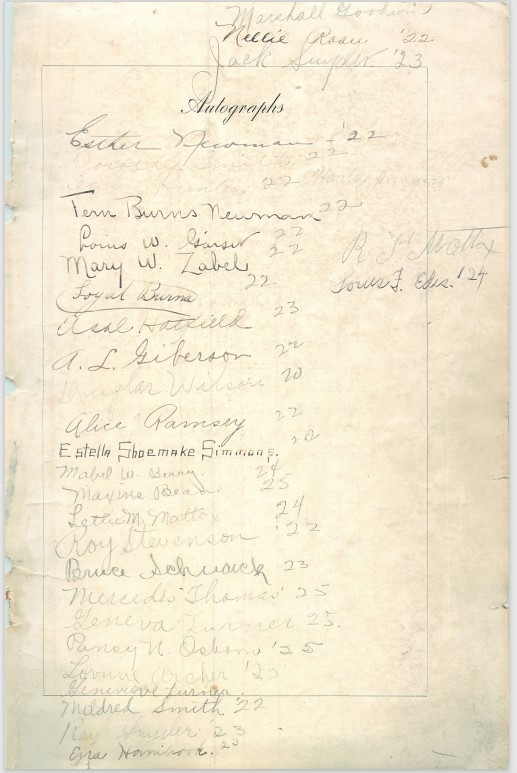 Marshall Goodwin
Nellie Roau '22
Jack Snyder '23
Autographs
Esther Newman - '22
Dorothy Smith 22
22
Fern Burns Newman 22
Louis W. 22
Mary W. Zabel 22
R Mattox
Louis F. Edes. '24
Loyal Burns 22
Asal Hatfield 23
A. L. Giberson 22
Douglas Wilson 20
Alice Ramsey 22
Estella Shoemake Simmons. 22
Mabel W. Berry. 24
Maxine Bean. 25
Lettie M. Mattox 24
Roy Stevenson '22
Bruce Schwaick 23
Mercedes Thomas 25
Geneva Turner 25.
Pansy N. Osborn '25
Lorune Archer '25
Genevieve Turner.
Mildred Smith '22
Ray Snyder 23
Ezra Hornibrook. 20.